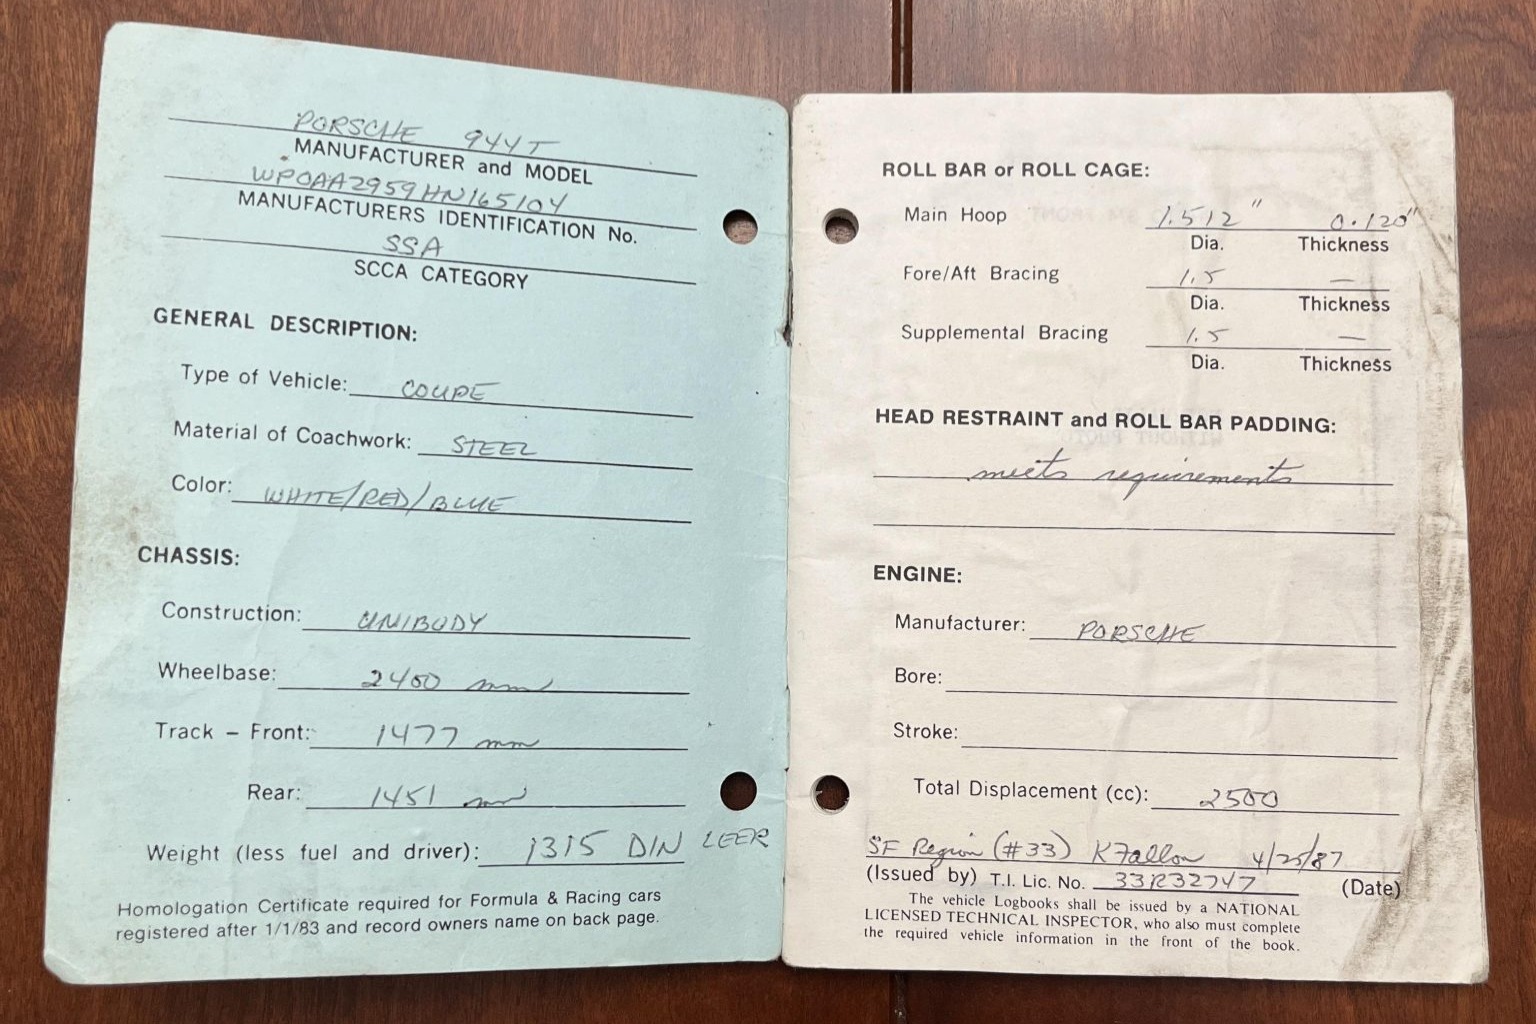 PORSCHE 944T
MANUFACTURER and MODEL
WPOAA2959HN165104
MANUFACTURERS IDENTIFICATION No.
SSA
SCCA CATEGORY
GENERAL DESCRIPTION:
Type of Vehicle: COUPE
Material of Coachwork: STEEL
Color: WHITE/RED/BLUE
CHASSIS:
Construction: UNIBODY
Wheelbase: 2400 mm
Track – Front: 1477 mm
Rear: 1451 mm
Weight (less fuel and driver): 1315 DIN LEER
Homologation Certificate required for Formula & Racing cars
registered after 1/1/83 and record owners name on back page.
ROLL BAR or ROLL CAGE:
Main Hoop 1.512" 0.120"
Dia. Thickness
Fore/Aft Bracing 1.5 —
Dia. Thickness
Supplemental Bracing 1.5 —
Dia. Thickness
HEAD RESTRAINT and ROLL BAR PADDING:
meets requirements
ENGINE:
Manufacturer: PORSCHE
Bore:
Stroke:
Total Displacement (cc): 2500
SF Region (#33) K Fallon 4/25/87
(Issued by) T.I. Lic. No. 33R32747 (Date)
The vehicle Logbooks shall be issued by a NATIONAL
LICENSED TECHNICAL INSPECTOR, who also must complete
the required vehicle information in the front of the book.